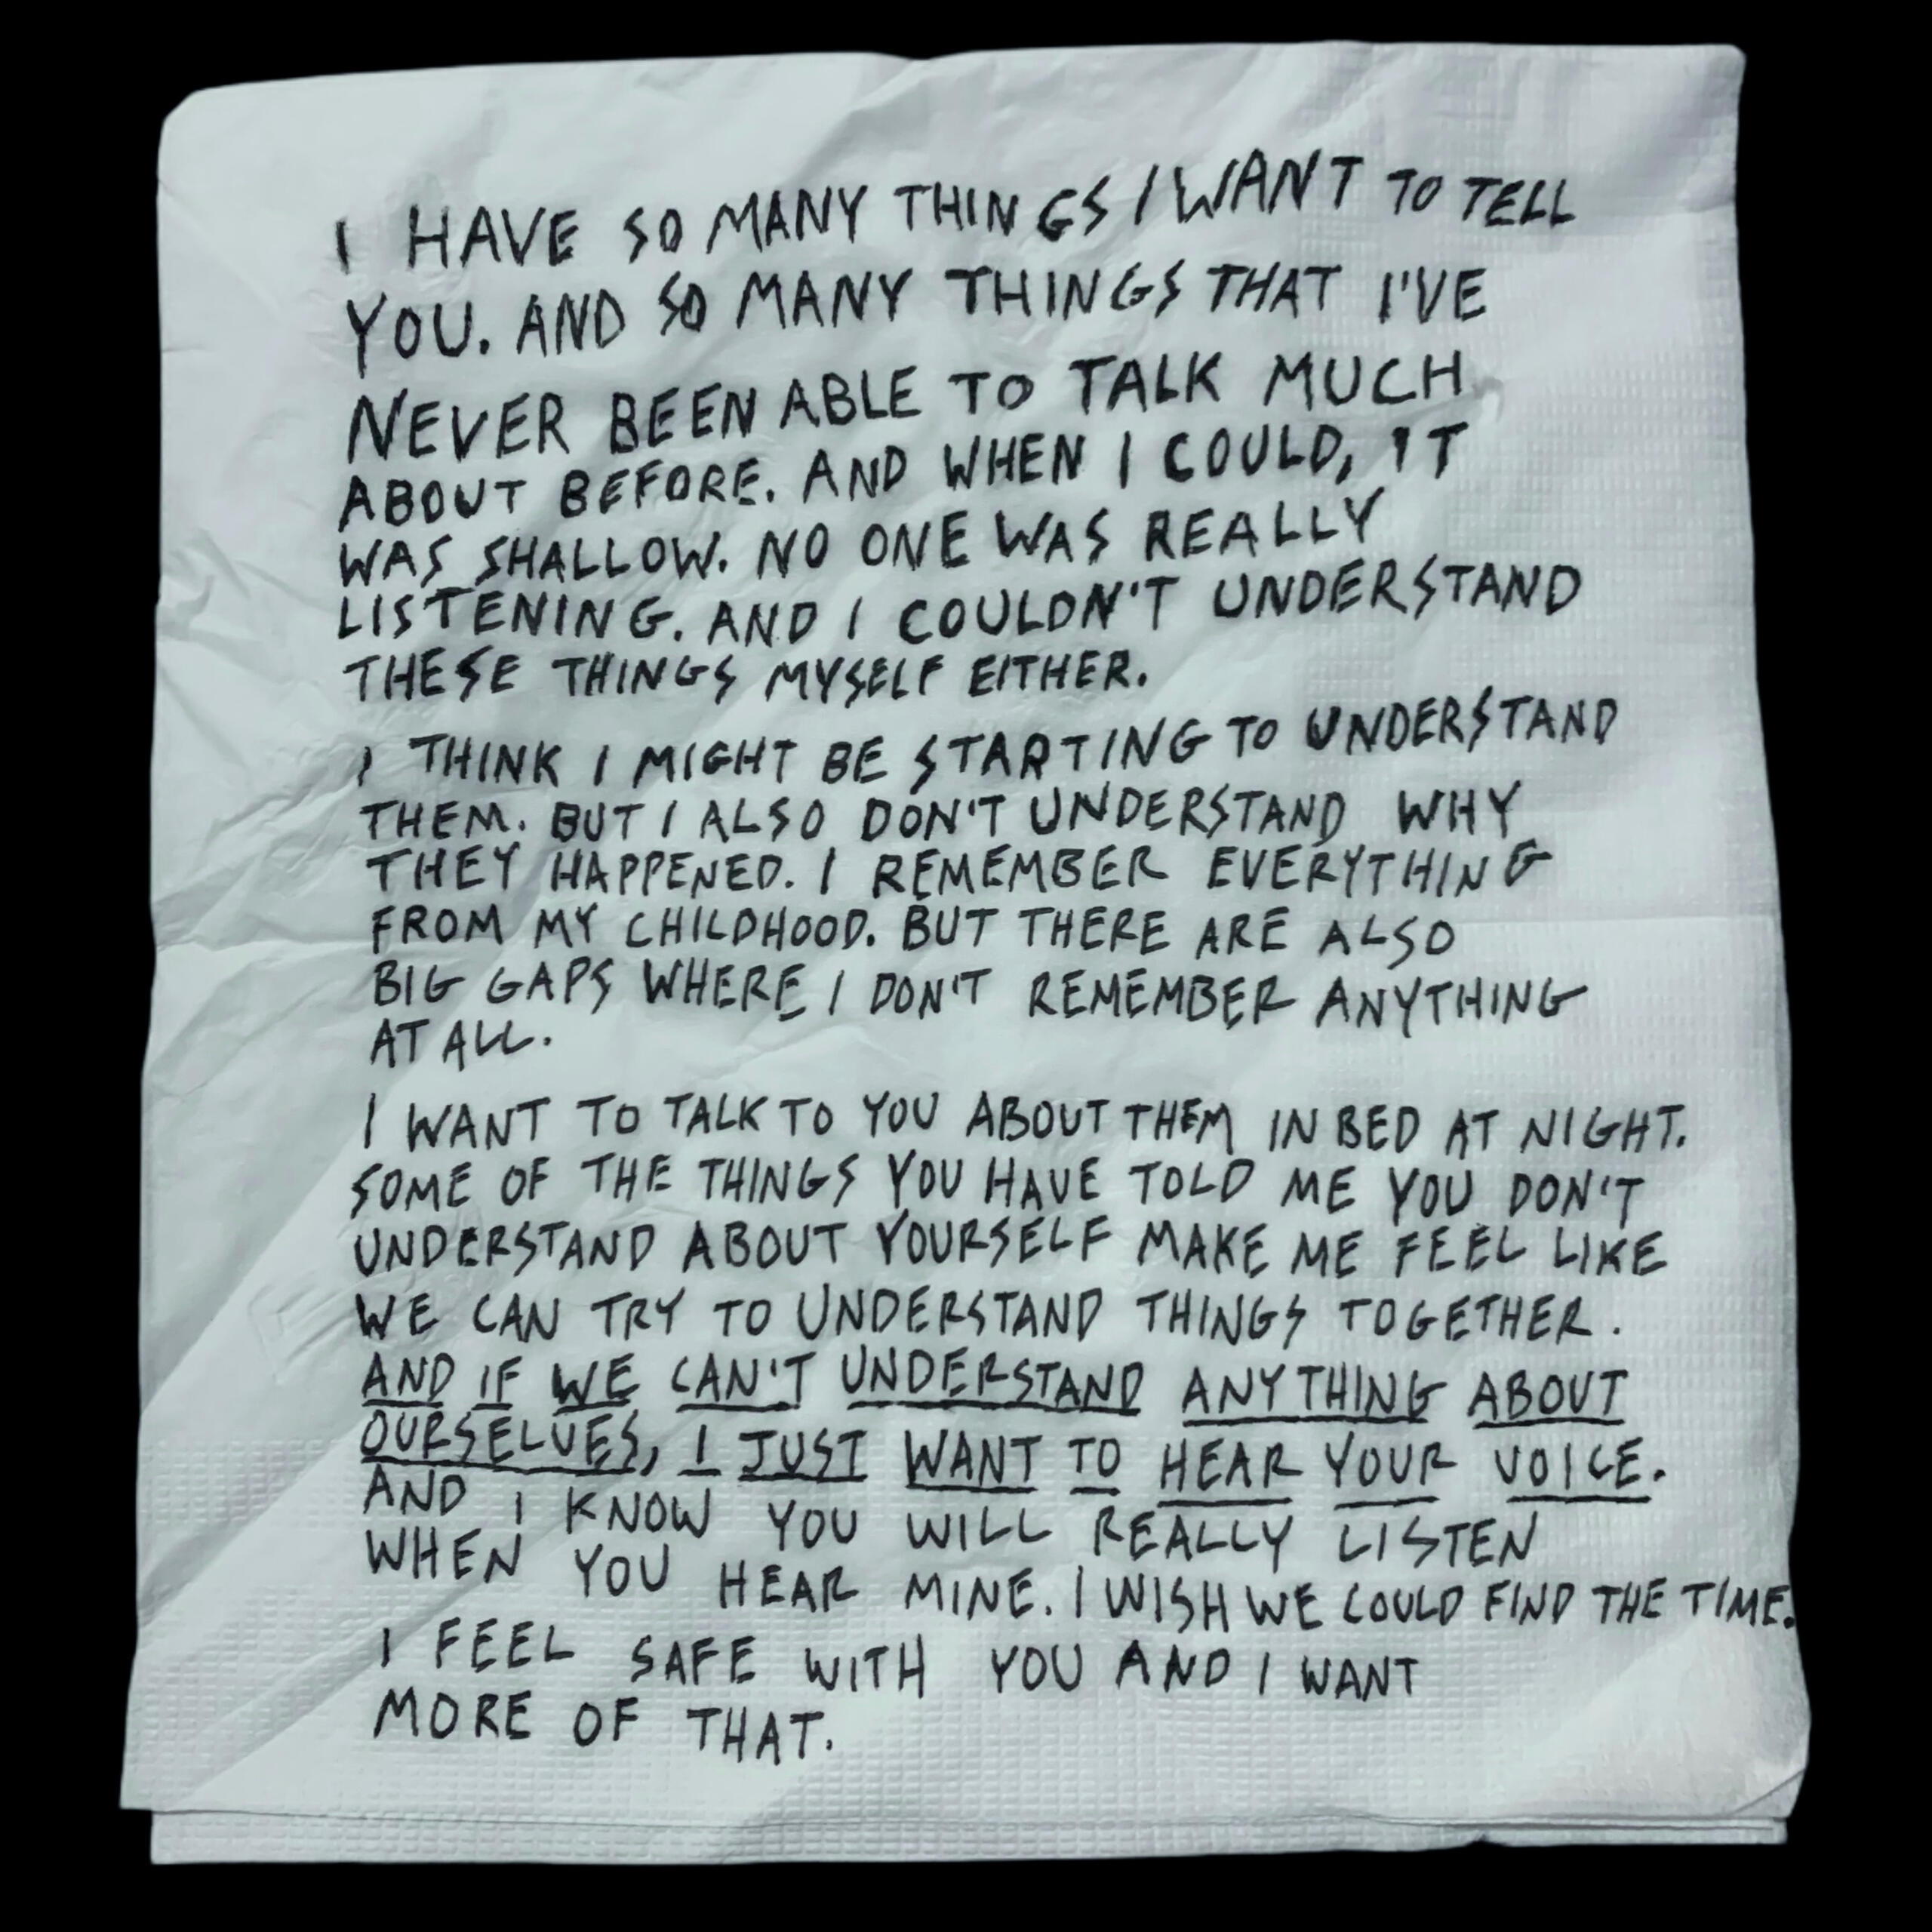 I HAVE SO MANY THINGS I WANT TO TELL
YOU. AND SO MANY THINGS THAT I'VE
NEVER BEEN ABLE TO TALK MUCH
ABOUT BEFORE. AND WHEN I COULD, IT
WAS SHALLOW. NO ONE WAS REALLY
LISTENING. AND I COULDN'T UNDERSTAND
THESE THINGS MYSELF EITHER.
I THINK I MIGHT BE STARTING TO UNDERSTAND
THEM. BUT I ALSO DON'T UNDERSTAND WHY
THEY HAPPENED. I REMEMBER EVERYTHING
FROM MY CHILDHOOD. BUT THERE ARE ALSO
BIG GAPS WHERE I DON'T REMEMBER ANYTHING
AT ALL.
I WANT TO TALK TO YOU ABOUT THEM IN BED AT NIGHT.
SOME OF THE THINGS YOU HAVE TOLD ME YOU DON'T
UNDERSTAND ABOUT YOURSELF MAKE ME FEEL LIKE
WE CAN TRY TO UNDERSTAND THINGS TOGETHER.
AND IF WE CAN'T UNDERSTAND ANYTHING ABOUT
OURSELVES, I JUST WANT TO HEAR YOUR VOICE.
AND I KNOW YOU WILL REALLY LISTEN
WHEN YOU HEAR MINE. I WISH WE COULD FIND THE TIME.
I FEEL SAFE WITH YOU AND I WANT
MORE OF THAT.